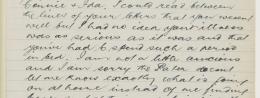 Connie & Eda. I could read between
the lines of your letters that you weren't
well but I had no idea your illness
was as serious as it was and that
you've had to spend such a period
in bed. I am not a little anxious
and I am sorry the Pater doesn't
let me know exactly what is going
on at home instead of me finding